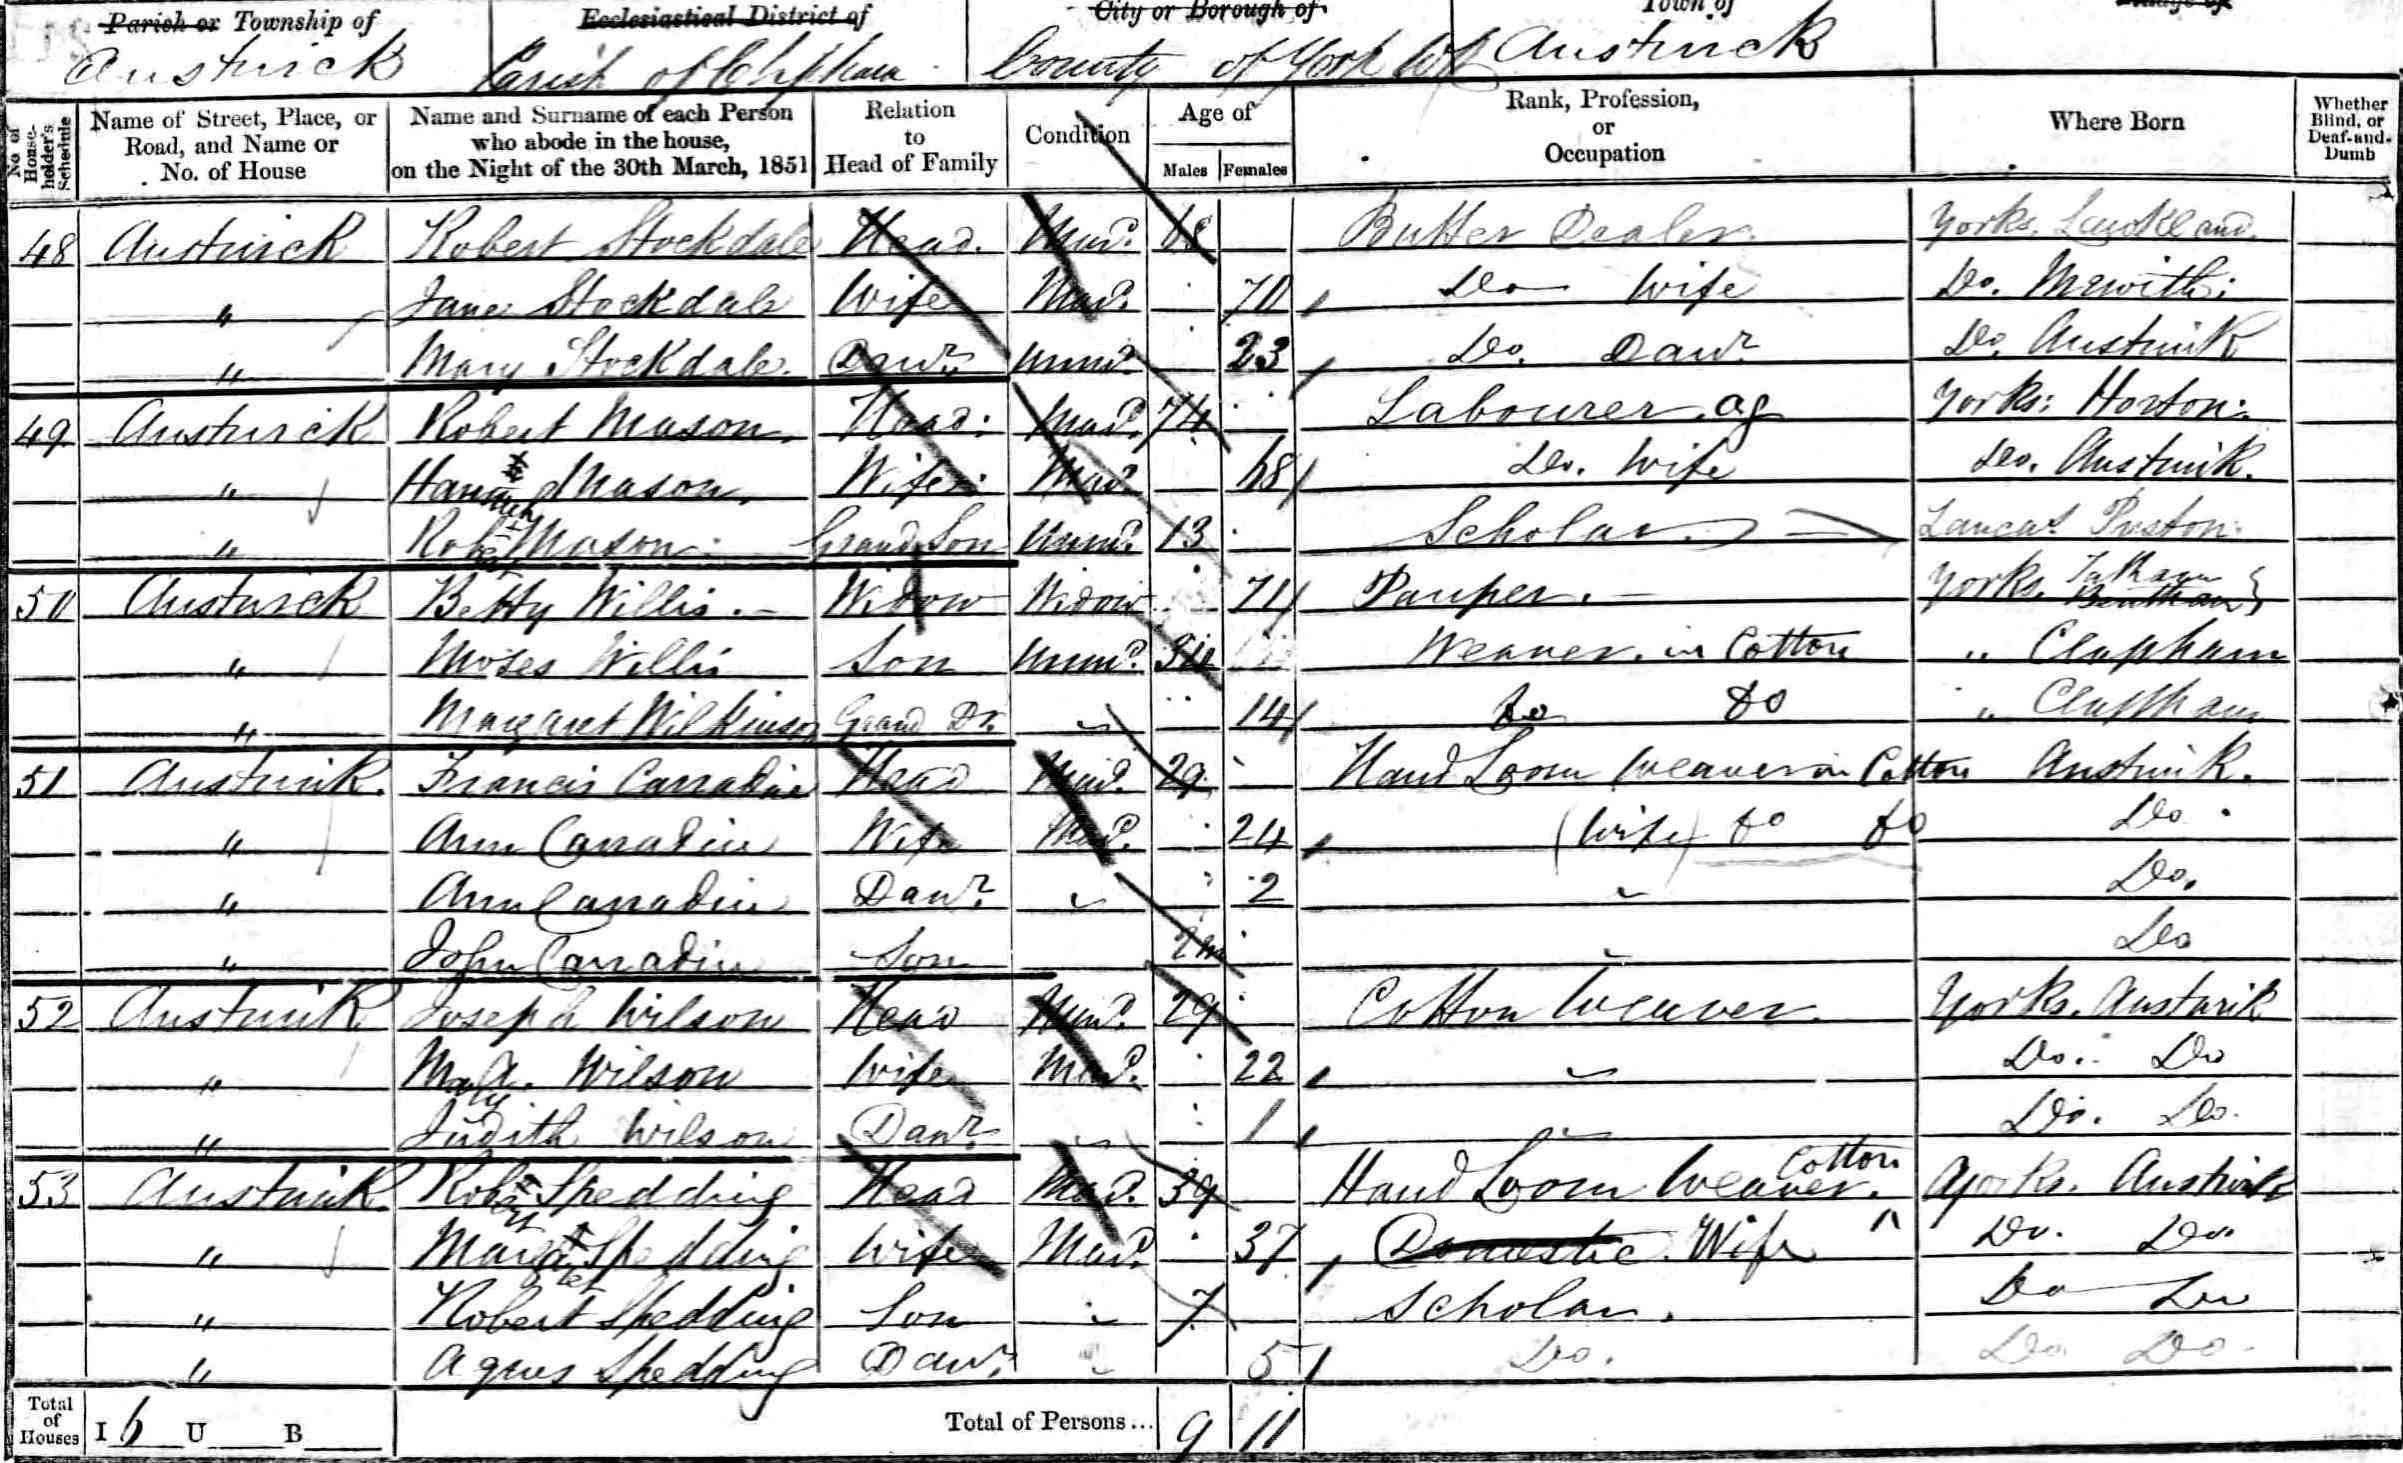 Parish or Township of Ecclesiastical District of City or Borough of Town of Village of
Austwick Parish of Clapham County of York Austwick
No. of House-holder's Schedule | Name of Street, Place, or Road, and Name or No. of House | Name and Surname of each Person who abode in the house, on the Night of the 30th March, 1851 | Relation to Head of Family | Condition | Age of Males Females | Rank, Profession, or Occupation | Where Born | Whether Blind, or Deaf-and-Dumb
48 Austwick Robert Stockdale Head. Mard. 68 Butter Dealer. Yorks. Lawkland.
" Jane Stockdale Wife Mard. 70 Do Wife Do. Mewith:
" Mary Stockdale. Dawr. Unmd. 23 Do. Dawr. Do. Austwik
49 Austwick Robert Mason. Head: Mard. 74 Labourer. ag Yorks: Horton:
" Hannah Mason. Wife: Mard 68 Do. Wife Do. Austwik.
" Robt Mason. Grand Son Unmd. 13 Scholar. Lancas. Preston.
50 Austwick Betty Willis. Widow Widow 71 Pauper. Yorks. Tatham Bentham
" Moses Willis Son Unmd. 34 Weaver. in Cotton " Clapham
" Margaret Wilkinson Grand Dr. " 14 Do Do " Clapham
51 Austwik. Francis Carradine Head Mard. 29 Hand Loom Weaver in Cotton Austwik.
" Ann Carradine Wife Mard. 24 (Wife) do do Do.
" Ann Carradine Dawr. " 2 " Do.
" John Carradine Son 2m " Do
52 Austwik Joseph Wilson Head Mard. 29 Cotton Weaver. Yorks. Austwik
" Mary A. Wilson Wife Mard. 22 " Do. Do
" Judith Wilson Dawr. " 1 " Do. Do.
53 Austwik Robert Spedding Head Mard. 39 Hand Loom Weaver. Cotton Yorks. Austwik
" Margaret Spedding Wife Mard. 37 Domestic. Wife Do. Do.
" Robert Spedding Son " 7 Scholar. Do Do
" Agnes Spedding Dawr. " 5 Do. Do. Do.
Total of Houses I 6 U B Total of Persons... 9 11